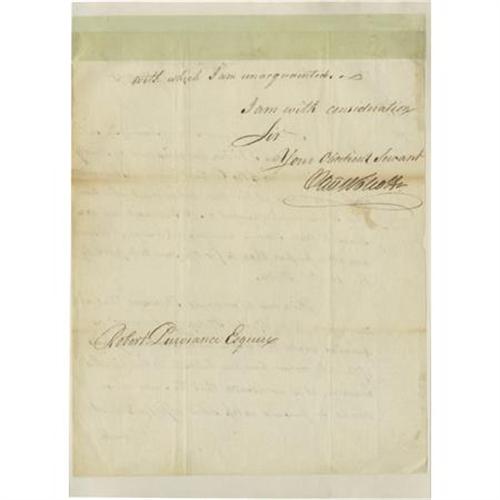 with which I am unacquainted.
I am with consideration
Sir
Your Obedient Servant
Oliv Wolcott
Robert Purviance Esquire